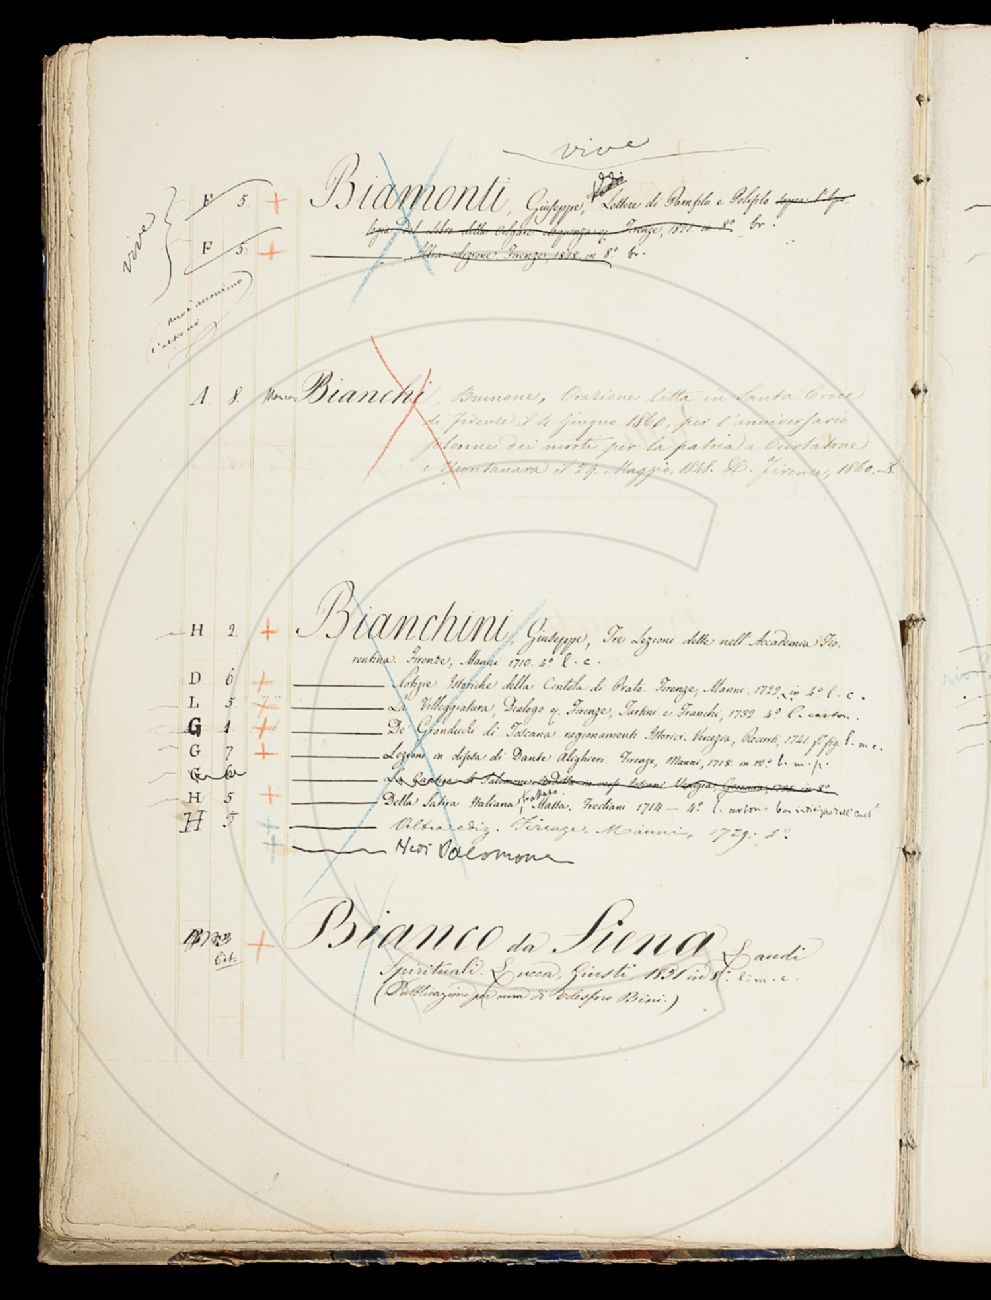 vive
F 5 Biamonti, Giuseppe, Lettere di Panfilo e Polifilo sopra l'Apo-
logia del libro della Volgare eloquenza ¶ Firenze, 1821 in 8.° br.
vive
F 5 Altra edizione Firenze, in 8.° br.
anonimo
A 8. Bianchi, Brunone, Orazione letta in Santa Croce
di Firenze il 4 Giugno 1860, per l'anniversario
solenne dei morti per la patria a Curtatone
e Montanara il 29. Maggio, 1848. &. Firenze, 1860. in 8.
H 2. Bianchini, Giuseppe, Tre Lezioni dette nell'Accademia Fio-
rentina. Firenze, Manni 1710. 4.° l. c.
D 6 Notizie Istoriche della Cintola di Prato. Firenze, Manni. in 4.° l. c.
L 5 La Villeggiatura, Dialogo ¶ Firenze, Tartini e Franchi, 1732 4.° l. carton.
G 1 De' Granduchi di Toscana ragionamenti Istorici. Venezia, Recurti, 1741 f.° fig. l. m. c.
G 7 Lezioni in difesa di Dante Alighieri. Firenze, Manni, 1718. in 10.° l. m. p.
G 6 La Cantica di Salomone ridotta in versi Toscani Venezia,
H 5 Della Satira Italiana, trattato. Massa. Frediani 1714 — 4.° l. carton.
H 5 Altra ediz. Firenze. Manni, 1729. 4.°
Vedi Salomone
Bianco da Siena, Laudi
Bib. Spirituali. Lucca, Giusti 1851 in 8.° l. m. c.
(Pubblicazione per cura di Telesforo Bini.)